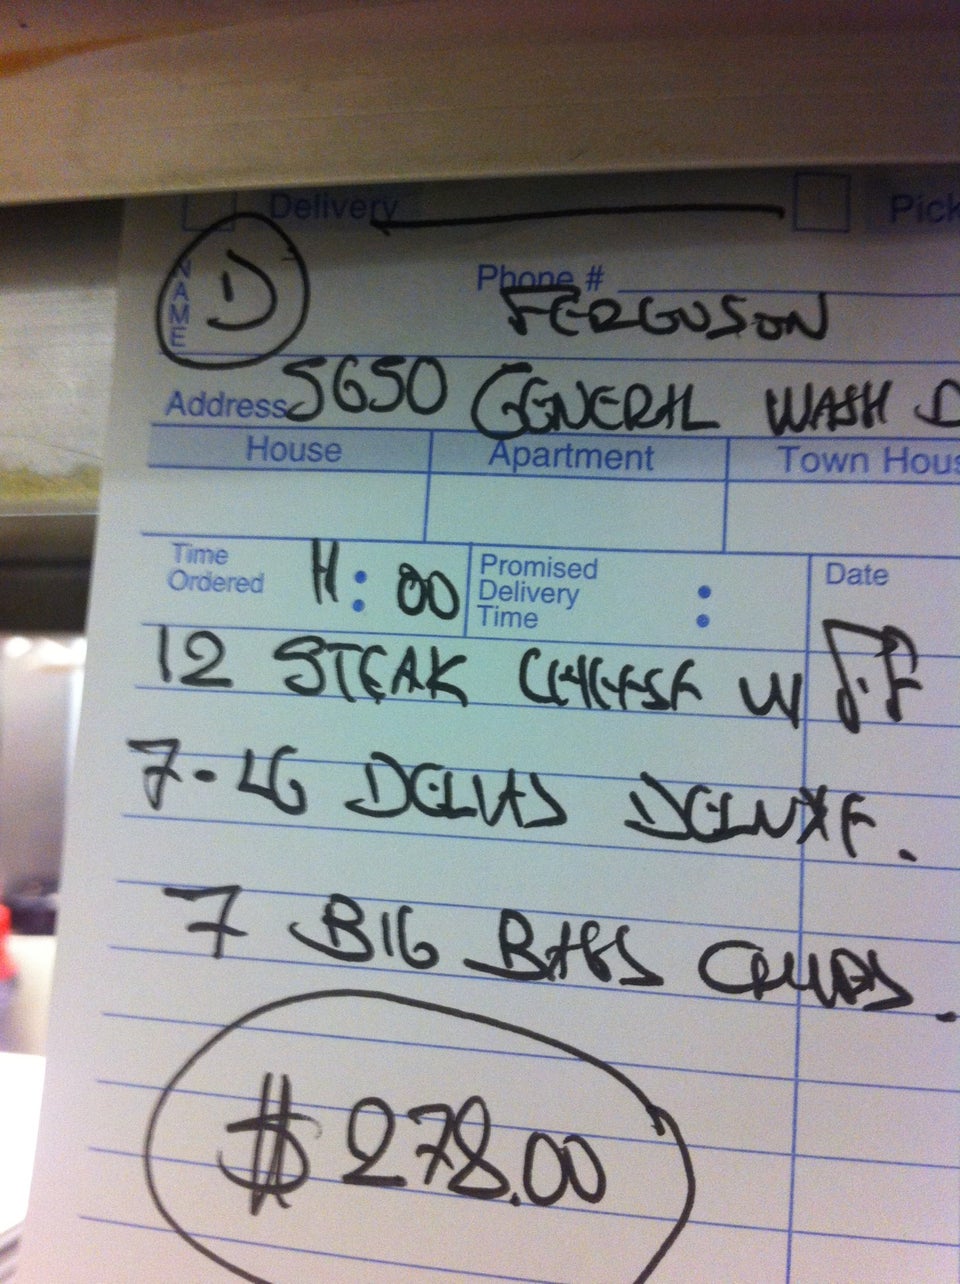 Delivery Pick
NAME D
Phone #
FERGUSON
Address 5650 GENERAL WASH D
House Apartment Town Hous
Time Ordered 11:00 Promised Delivery Time : Date
12 STEAK CHEESE W/ F.F
7-LG DELUXE.
7 BIG BAGS CHIPS.
$278.00